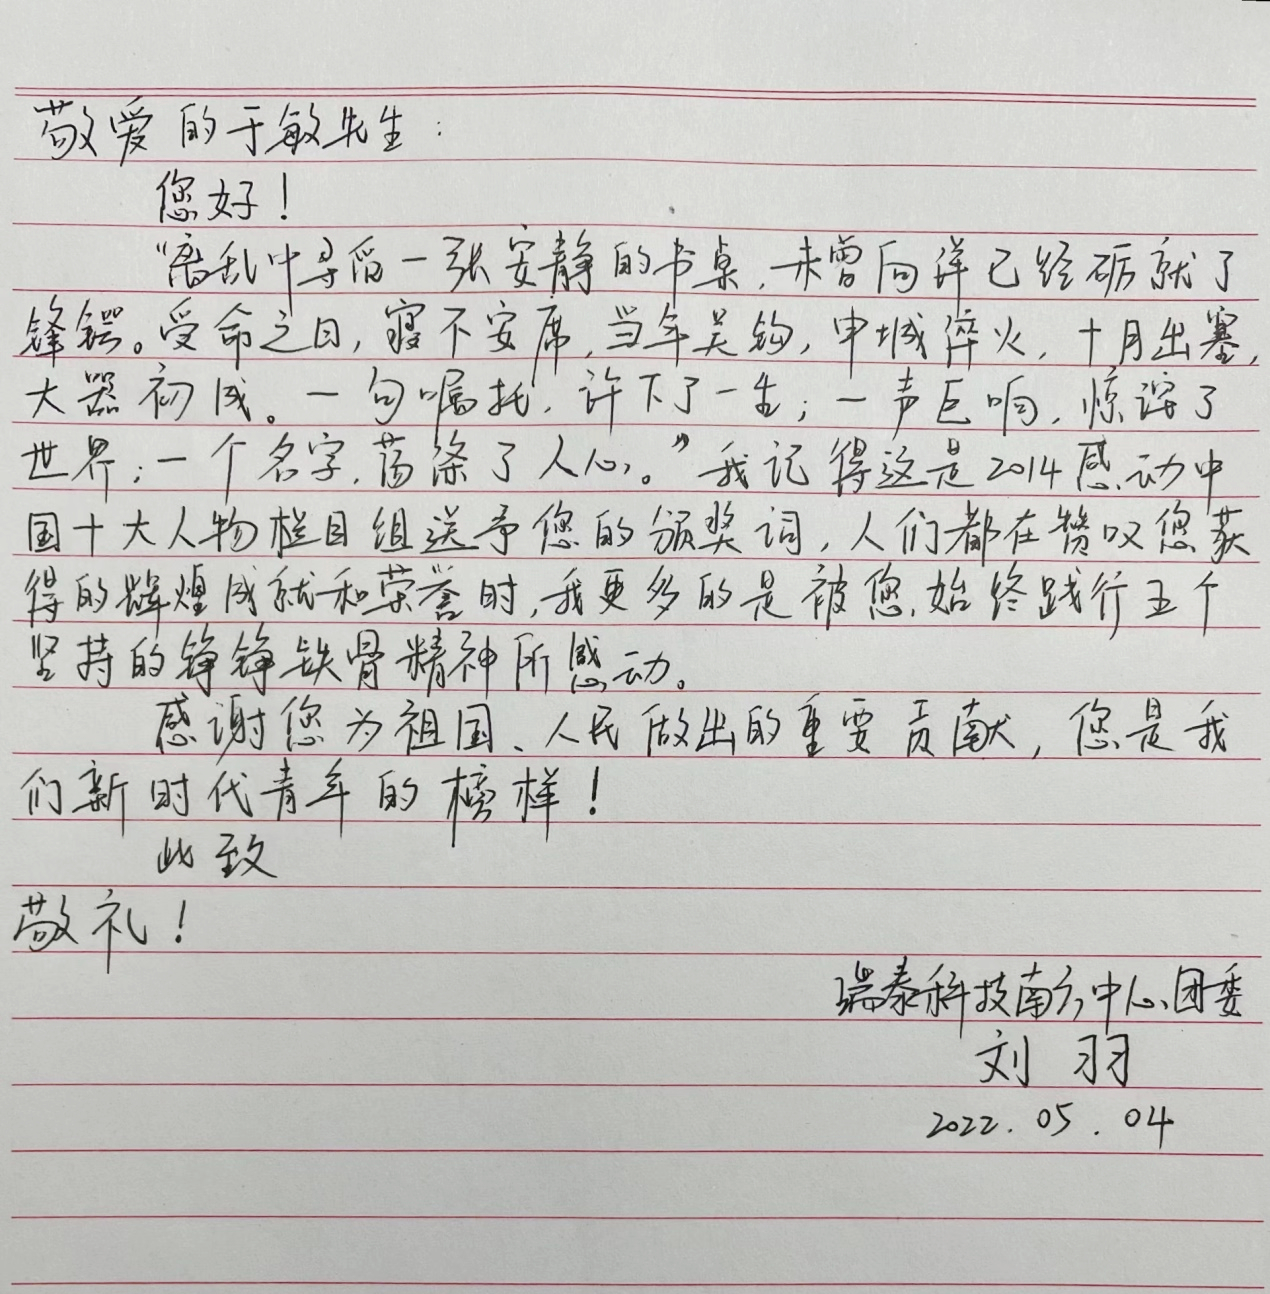 敬爱的于敏先生：
您好！
“离乱中寻得一张安静的书桌，未曾向洋已经砺就了
锋锷。受命之日，寝不安席，当年吴钩，申城淬火，十月出塞，
大器初成。一句嘱托，许下了一生；一声巨响，惊诧了
世界；一个名字，荡涤了人心。”我记得这是2014感动中
国十大人物栏目组送予您的颁奖词，人们都在赞叹您获
得的辉煌成就和荣誉时，我更多的是被您始终践行五个
坚持的铮铮铁骨精神所感动。
感谢您为祖国、人民做出的重要贡献，您是我
们新时代青年的榜样！
此致
敬礼！
瑞泰科技南方中心团委
刘 羽
2022.05.04